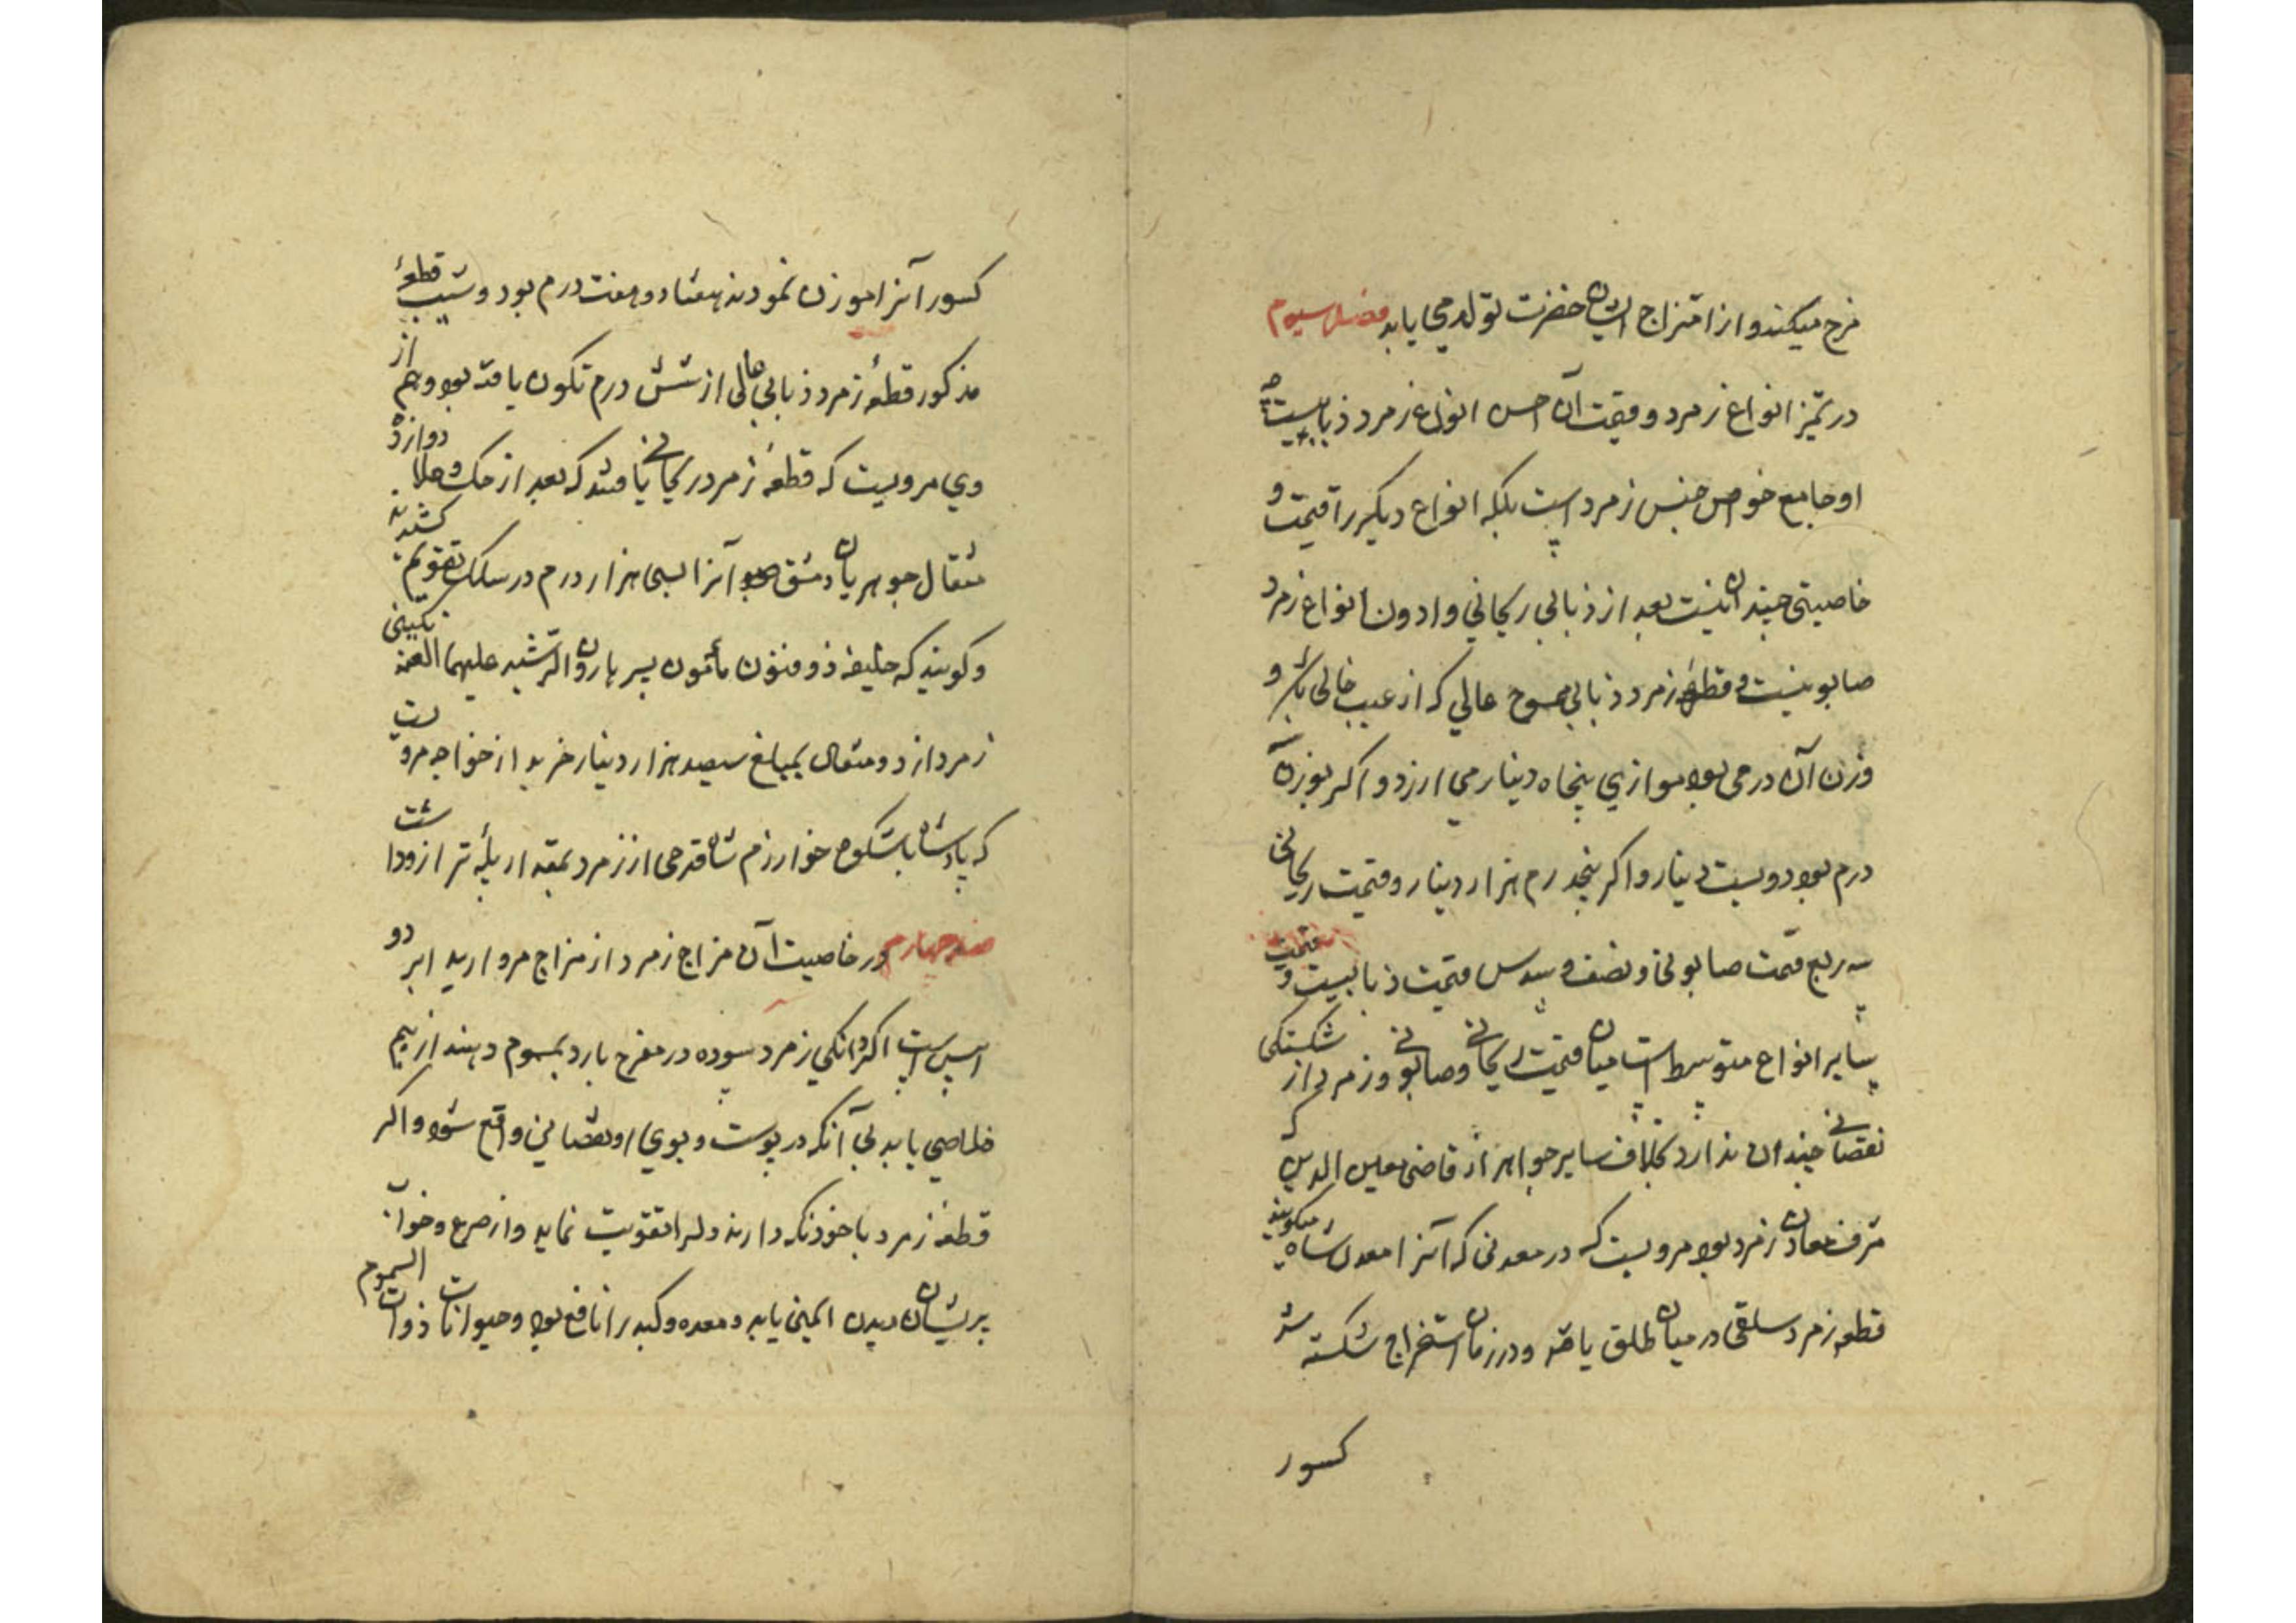 مزج میکنند و از امتزاج ایشان خضرت تولد می یابد فصل سیوم
در تمیز انواع زمرد و قیمت آن احسن انواع زمرد ذبابیست چه
او جامع خواص جنس زمرد است بلکه انواع دیگر را قیمت و
خاصیتی چندان نیست بعد از ذبابی ریحانی و ادون انواع زمرد
صابونیست و قطعهٔ زمرد ذبابی ممسوح عالی که از عیب خالی باشد و
وزن آن درمی بود موازی پنجاه دینار می ارزد و اکر بوزن
درم بود دویست دینار و اکر پنجدرم هزار دینار و قیمت ریحانی
سه ربع قیمت صابونی و نصف و سدس قیمت ذبابیست و قیمت
سایر انواع متوسط است میان قیمت ریحانی و صابونی و زمرد از شکستکی
نقصانی چندان ندارد بخلاف سایر جواهر از قاضی معین الدین که
مشرف معادن زمرد بود مرویست که در معدنی که آنرا معدن شاه میکویند
قطعه زمرد سلقی در میان طلق یافته و در زمان استخراج شکسته شد
کسور
کسور آنرا موزن نمودند هفتاد و هفت درم بود و شیب قطعهٔ
مذکور قطعهٔ زمرد ذبابی عالی از شش درم تکون یافته بود و هم از
وی مرویست که قطعهٔ زمرد ریحانی یافتند که بعد از حک و جلا دوازده
مثقال جوهریان دمشق آنرا بسی هزار درم در سلک تقویم کشیدند
و کویند که خلیفه ذو فنون مأمون پسر هارون الرشید علیهما اللعنه نکینی
زمرد از دو مثقال بمبلغ سیصد هزار دینار خرید از خواجه مرویست
که پادشاه باشکوه خوارزم شاه قدحی از زمرد بمقدار پلهٔ ترازو داشت
فصل چهارم در خاصیت آن مزاج زمرد از مزاج مروارید ابرد و
ایبس است اکر دانکی زمرد سوده در مفرح بارد بمسموم دهند از بیم
خلاصی یابد بی آنکه در پوست و بوی او نقصانی واقع شود و اکر
قطعهٔ زمرد با خود نکه دارند دلرا تقویت نماید و از صرع و خواب
پریشان دیدن ایمنی یابد و معده و کبد را نافع بود و حیوانات ذوات السموم